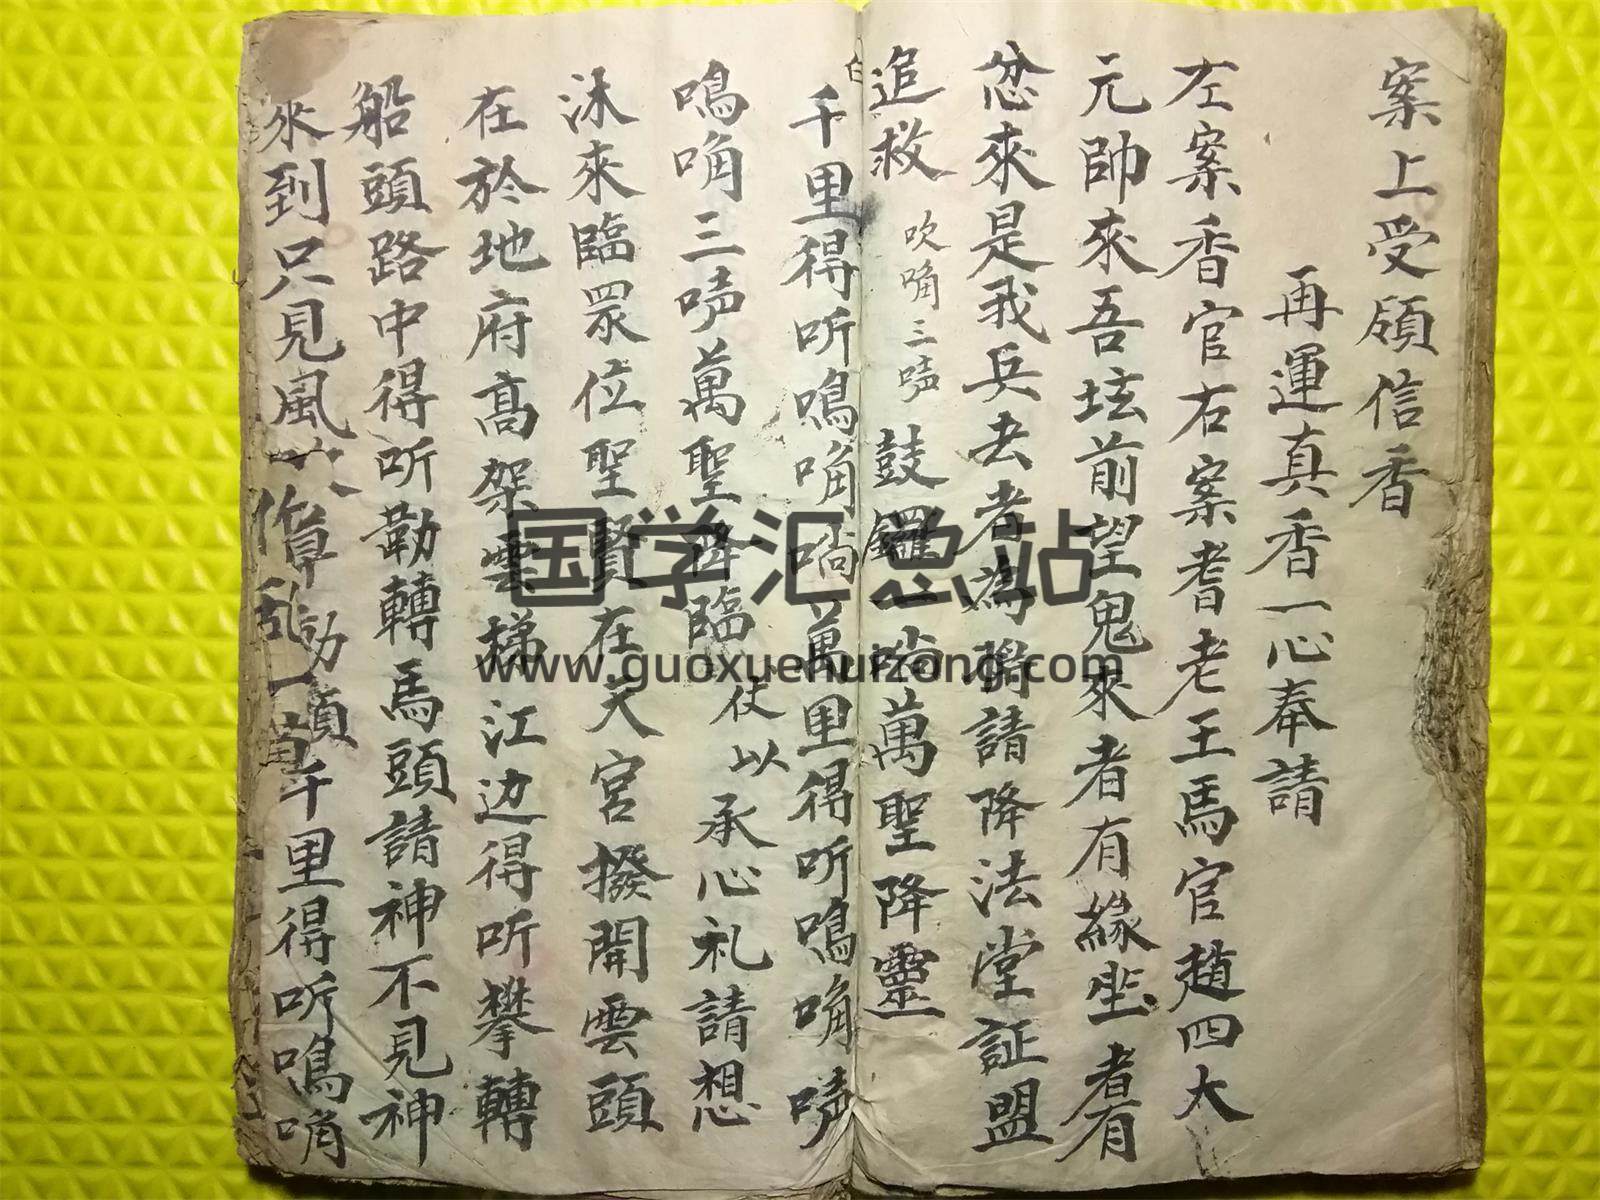 案上受領信香
再運真香一心奉請
左案香官右案耆老王馬官趙四大
元帥來吾坛前望鬼來者有緣坐者有
忿來是我兵去者為將請降法堂証盟
追救 吹喃三唠 鼓鑼一喃萬聖降靈
白
千里得听鳴喃喃萬里得听鳴喃唠
鳴喃三唠萬聖降臨 仗以承心礼請想
沐來臨眾位聖賢在天宮撥開雲頭
在於地府高架雲梯江边得听攀轉
船頭路中得听勒轉馬頭請神不見神
來到只見風
千里得听鳴喃
国学汇总站
www.guoxuehuizong.com